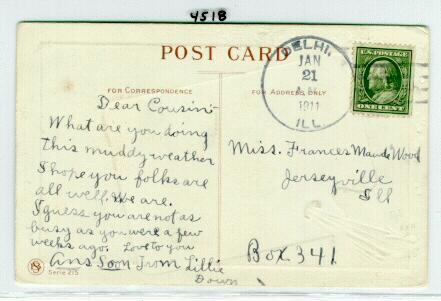 4518
POST CARD
FOR CORRESPONDENCE
FOR ADDRESS ONLY
DELHI,
JAN
21
1911
ILL.
U.S. POSTAGE
ONE CENT
Dear Cousin:-
What are you doing
this muddy weather
I hope you folks are
all well. We are.
I guess you are not as
busy as you were a few
weeks ago. Love to you
Ans Soon From Lillie
Down
Miss. Frances Maude Wood
Jerseyville
Ill
Box 341
Serie 215